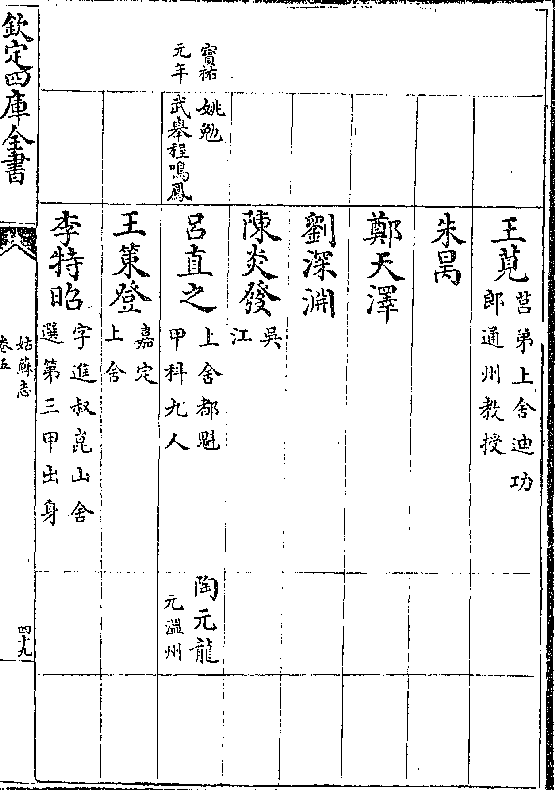 王莧
莒弟上舍迪功
郎通州教授
朱暠
鄭天澤
劉深淵
陳炎發
吳
江
寳祐
元年
姚勉
武舉程鳴鳳
呂直之
上舍都魁
甲科九人
陶元龍
元溫州
王策登
嘉定
上舍
李特昭
字進叔崑山舍
選第三甲出身
欽定四庫全書
姑蘇志
卷五
四十九